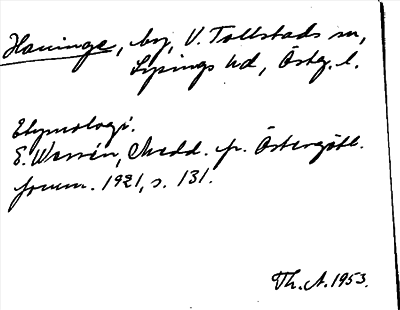 Haninge, by, V. Tollstads sn,
Lysings hd, Östg. l.
Etymologi.
E. Wessén, Medd. fr. Östergötl.
fornm. 1921, s. 131.
Th. A. 1953.